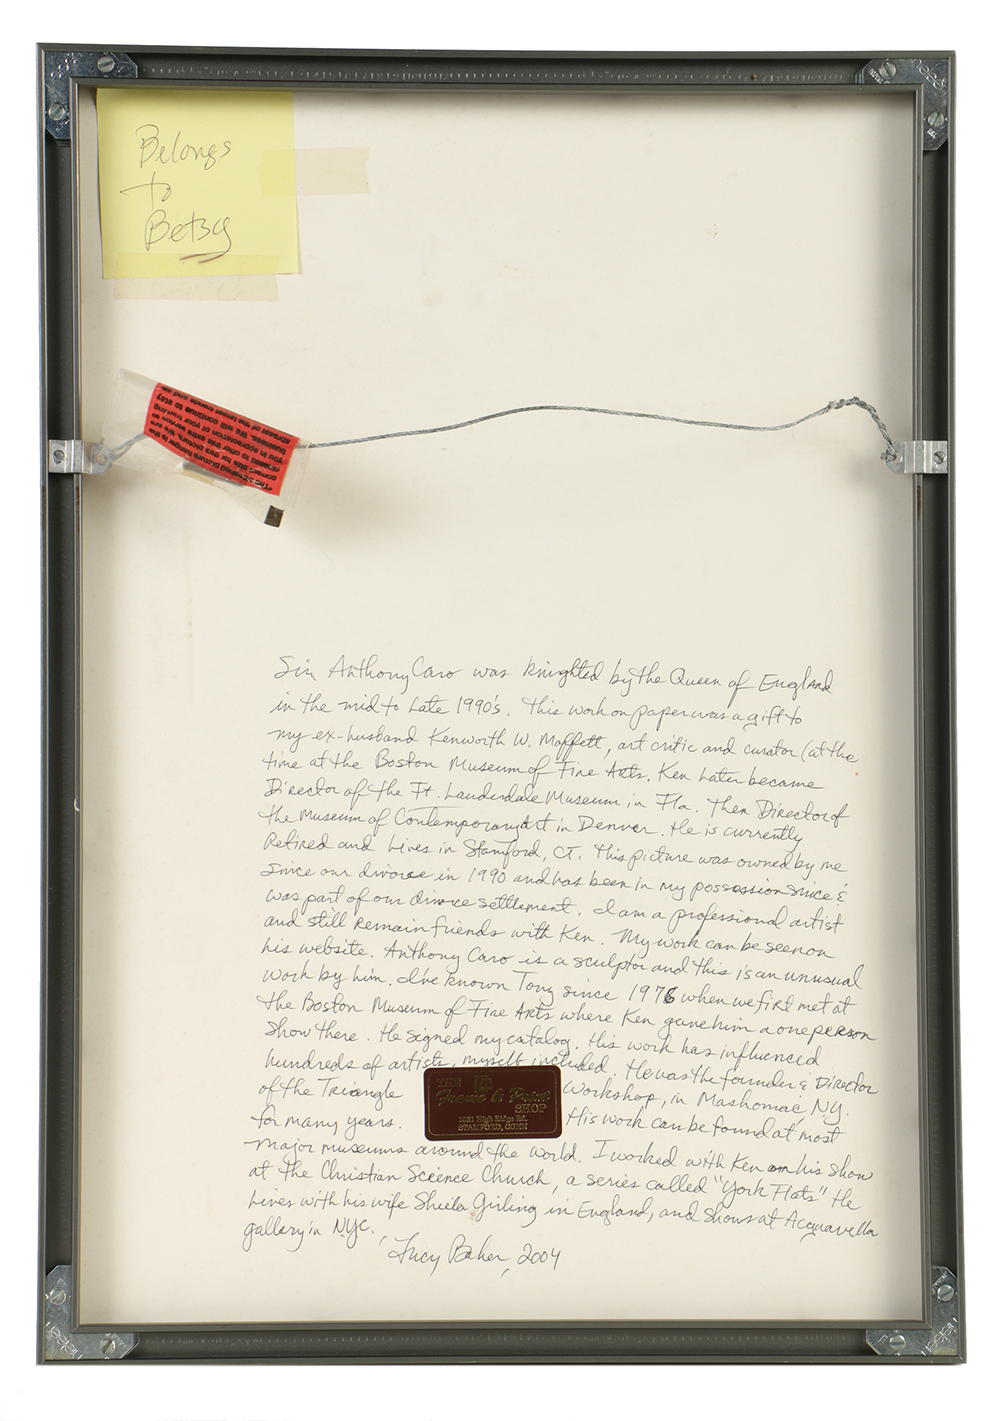 Belongs
to
Betsy
Sir Anthony Caro was knighted by the Queen of England
in the mid to late 1990's. This work on paper was a gift to
my ex-husband Kenworth W. Moffett, art critic and curator (at the
time at the Boston Museum of Fine Arts. Ken later became
Director of the Ft. Lauderdale Museum in Fla. Then Director of
the Museum of Contemporary Art in Denver. He is currently
Retired and lives in Stamford, CT. This picture was owned by me
since our divorce in 1990 and has been in my possession since &
was part of our divorce settlement. I am a professional artist
and still remain friends with Ken. My work can be seen on
his website. Anthony Caro is a sculptor and this is an unusual
work by him. I've known Tony since 1976 when we first met at
the Boston Museum of Fine Arts where Ken gave him a one person
show there. He signed my catalog. His work has influenced
hundreds of artists, myself included. He was the founder & Director
of the Triangle Workshop, in Mashomac, N.Y.
for many years. His work can be found at most
major museums around the world. I worked with Ken on his show
at the Christian Science Church, a series called "York Flats" He
lives with his wife Sheila Girling in England, and shows at Acquavella
gallery in NYC.
Lucy Baker, 2004
THE
Frame & Print
SHOP
1051 High Ridge Rd.
STAMFORD, CONN